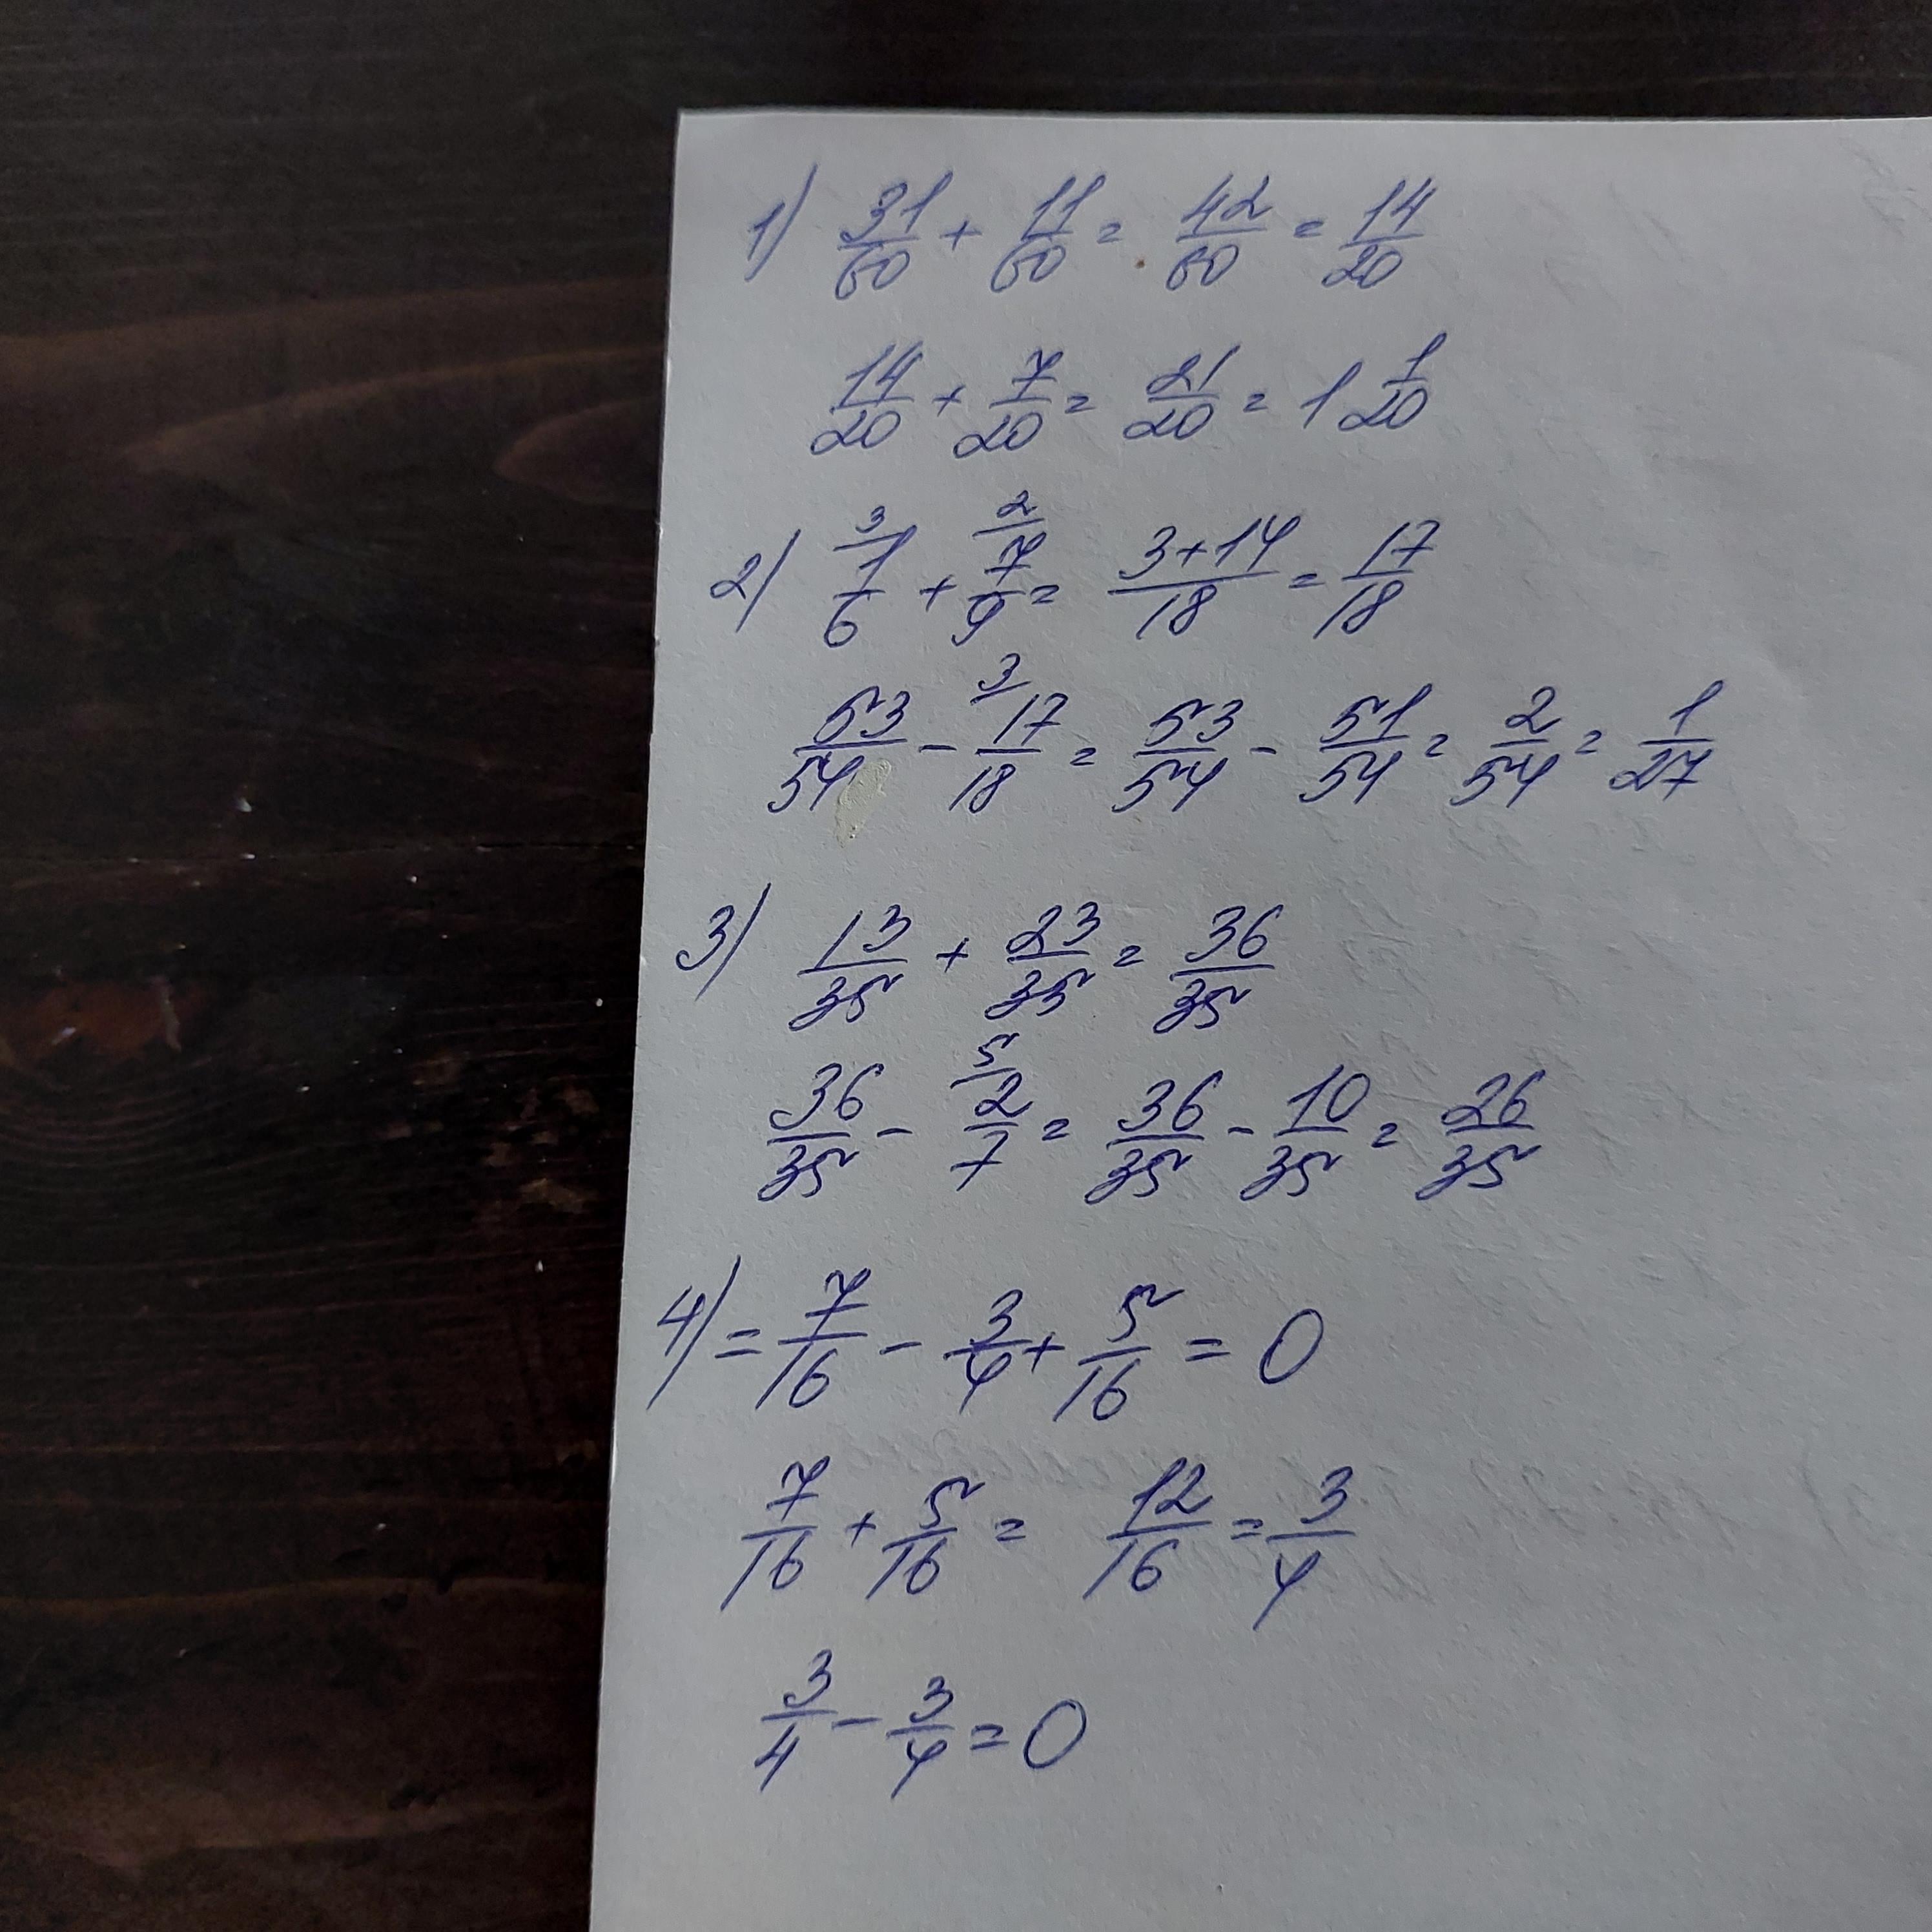 1) 31/60 + 11/60 = 42/60 = 14/20
14/20 + 7/20 = 21/20 = 1 1/20
2) 3/ 1/6 + 2/ 7/9 = 3+14/18 = 17/18
53/54 - 3/ 17/18 = 53/54 - 51/54 = 2/54 = 1/27
3) 13/35 + 23/35 = 36/35
36/35 - 5/ 2/7 = 36/35 - 10/35 = 26/35
4) = 7/16 - 3/4 + 5/16 = 0
7/16 + 5/16 = 12/16 = 3/4
3/4 - 3/4 = 0